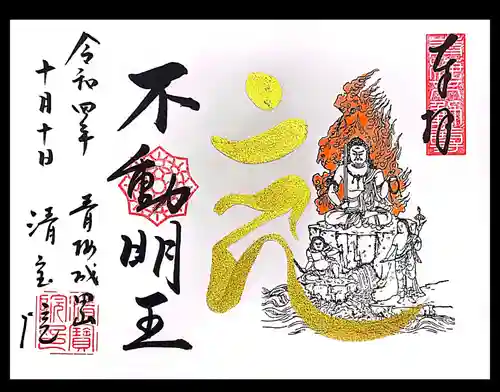 奉拝
不動明王
令和四年
十月十日
青梅成田山
清宝院